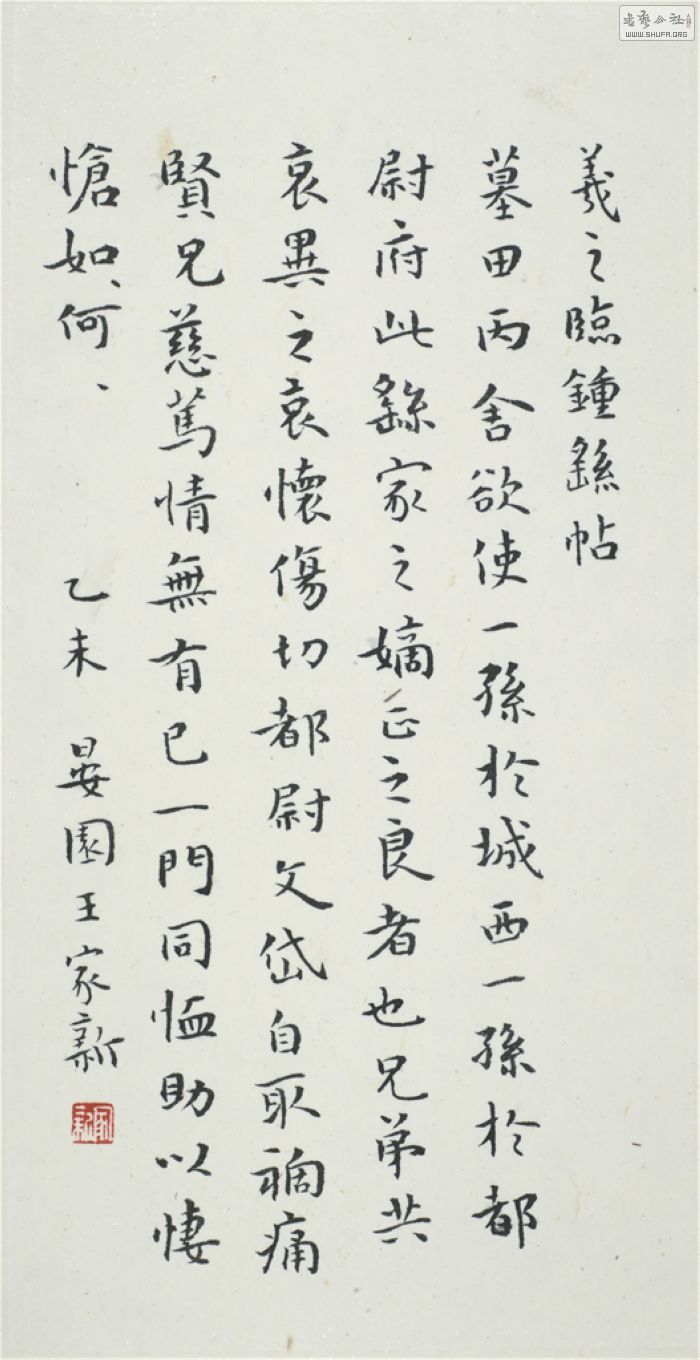 羲之臨鍾繇帖
墓田丙舍欲使一孫於城西一孫於都
尉府此繇家之嫡正之良者也兄弟共
哀異之哀懷傷切都尉文岱自取禍痛
賢兄慈篤情無有已一門同恤助以悽
愴如何、、
乙未 晏園王家新
書藝公社
WWW.SHUFA.ORG